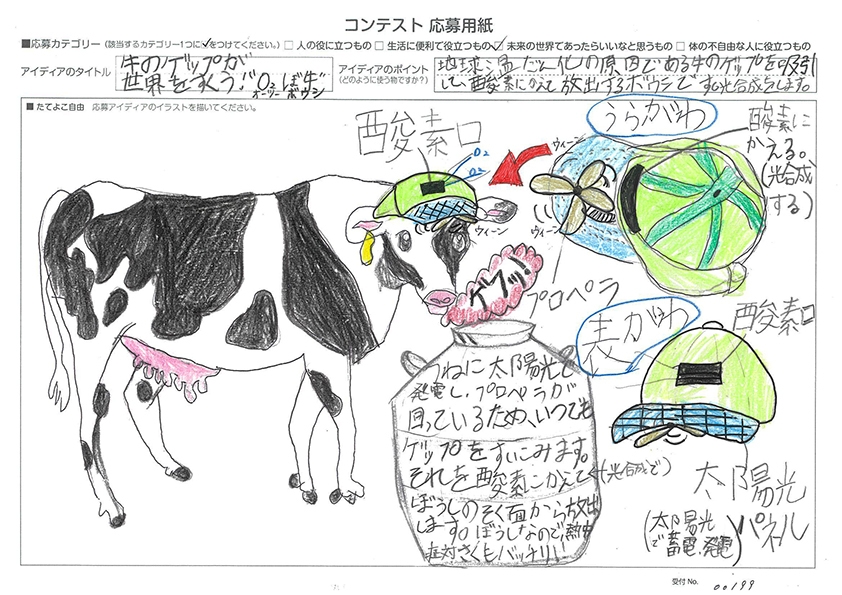 コンテスト 応募用紙
■応募カテゴリー (該当するカテゴリー1つに✓をつけてください。) □ 人の役に立つもの □ 生活に便利で役立つもの ☑ 未来の世界であったらいいなと思うもの □ 体の不自由な人に役立つもの
アイディアのタイトル
牛のゲップが
世界をすくう!!O₂ぼ牛
オーツー ボウシ
アイディアのポイント
(どのように使う物ですか?)
地球温だん化の原因である牛のゲップを吸引
して、酸素にかえて放出するボウシです。光合成もします。
■ たてよこ自由 応募アイディアのイラストを描いてください。
酸素口
O₂
O₂
ウィーン
ゲフッ!
うらがわ
ウィーン
ウィーン
プロペラ
酸素に
かえる。
(光合成
する)
表がわ
酸素口
太陽光
パネル
(太陽光
で蓄電、発電)
つねに太陽光で
発電し、プロペラが
回っているため、いつでも
ゲップをすいこみます。
それを酸素にかえて(光合成で)
ぼうしのそく面から放出
します。ぼうしなので、熱中
症対さくもバッチリ!!
受付 No. 00199